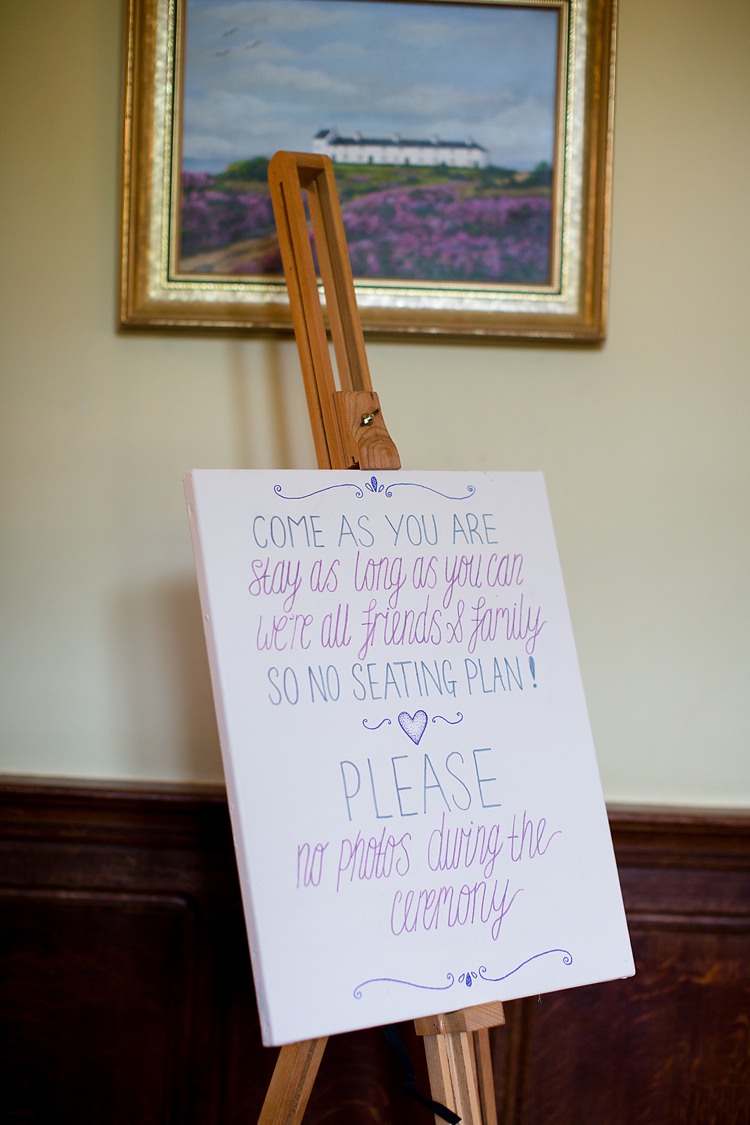 COME AS YOU ARE
stay as long as you can
we're all friends & family
SO NO SEATING PLAN!
PLEASE
no photos during the
ceremony